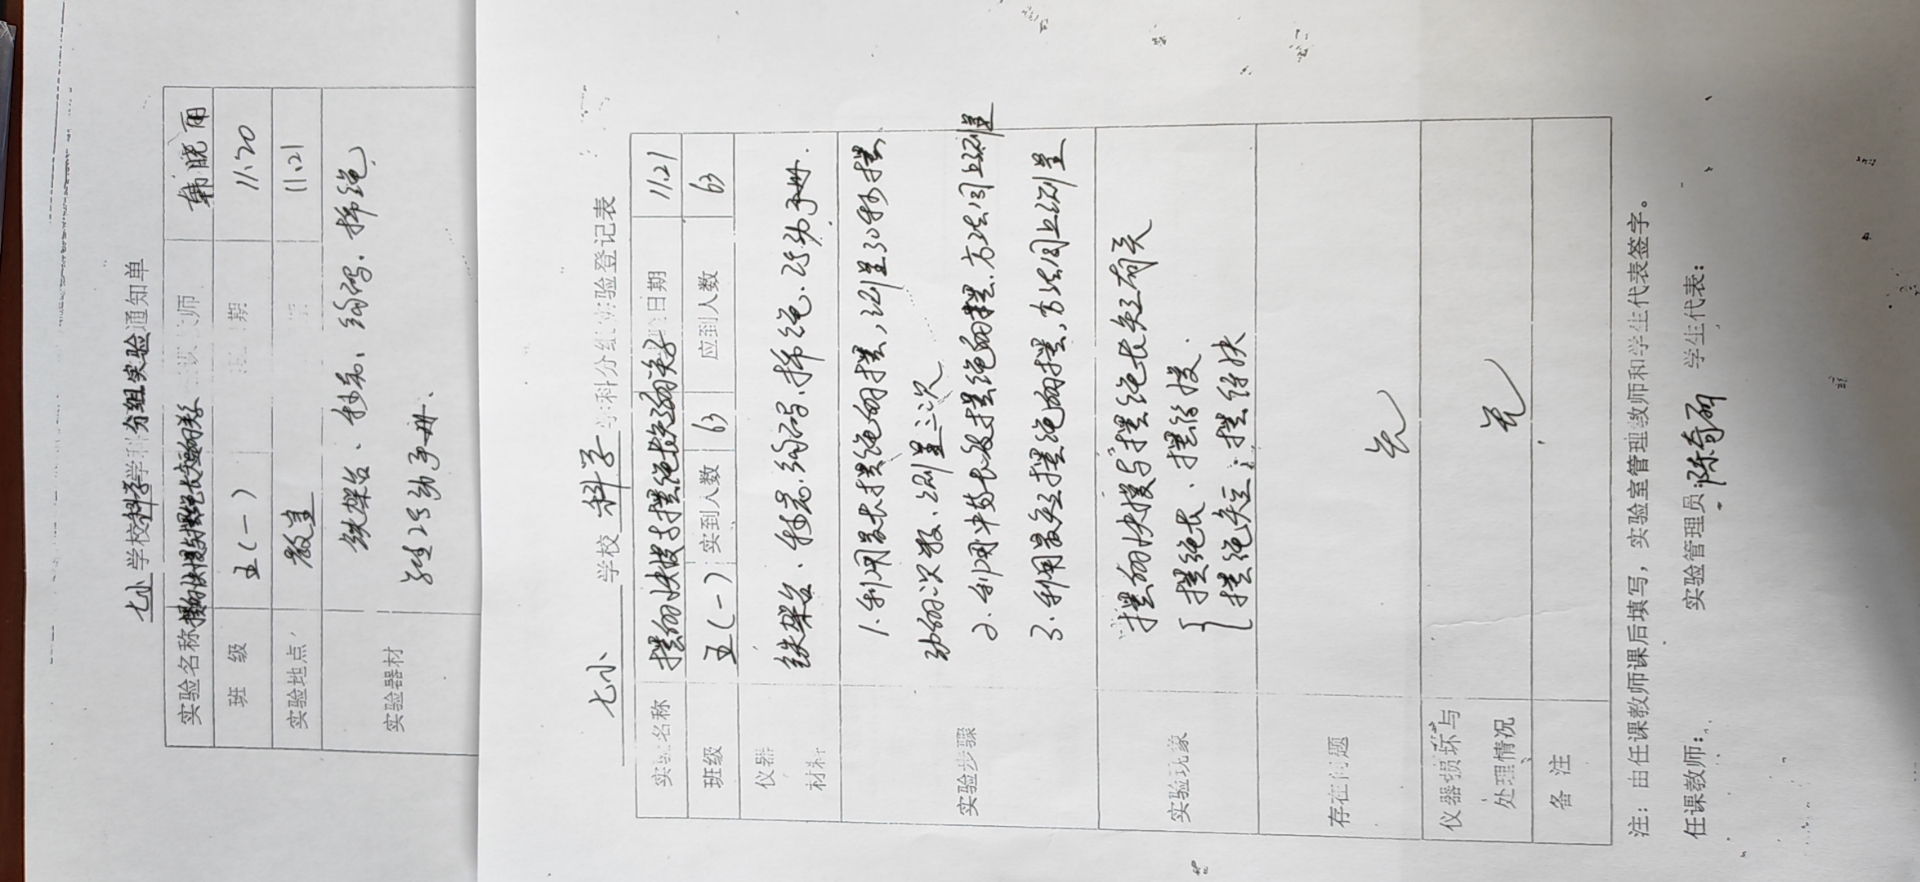 七小学校科学学科分组实验通知单
实验名称 摆的快慢与摆绳长短的关系 师 韩晓雨
班 级 五(一) 期 11.20
实验地点 教室 11.21
实验器材 铁架台、秒表、钩码、棉绳
学生活动手册、
七小 学校 科学 学科分组实验登记表
实验名称 摆的快慢与摆绳长短的关系 日期 11.21
班级 五(一) 实到人数 63 应到人数 63
仪器
材料
铁架台、秒表、钩码、棉绳、活动手册.
实验步骤
1.利用最长摆绳的摆,测量30秒摆
动的次数、测量三次
2.利用中等长度摆绳的摆.方法同上测量
3.利用最短摆绳的摆,方法同上测量
实验现象
摆的快慢与摆绳长短有关
{摆绳长、摆的慢.
摆绳短;摆得快
存在问题 无
仪器损坏与
处理情况
无
备 注
注:由任课教师课后填写,实验室管理教师和学生代表签字。
任课教师: 实验管理员:陈奇丽 学生代表: